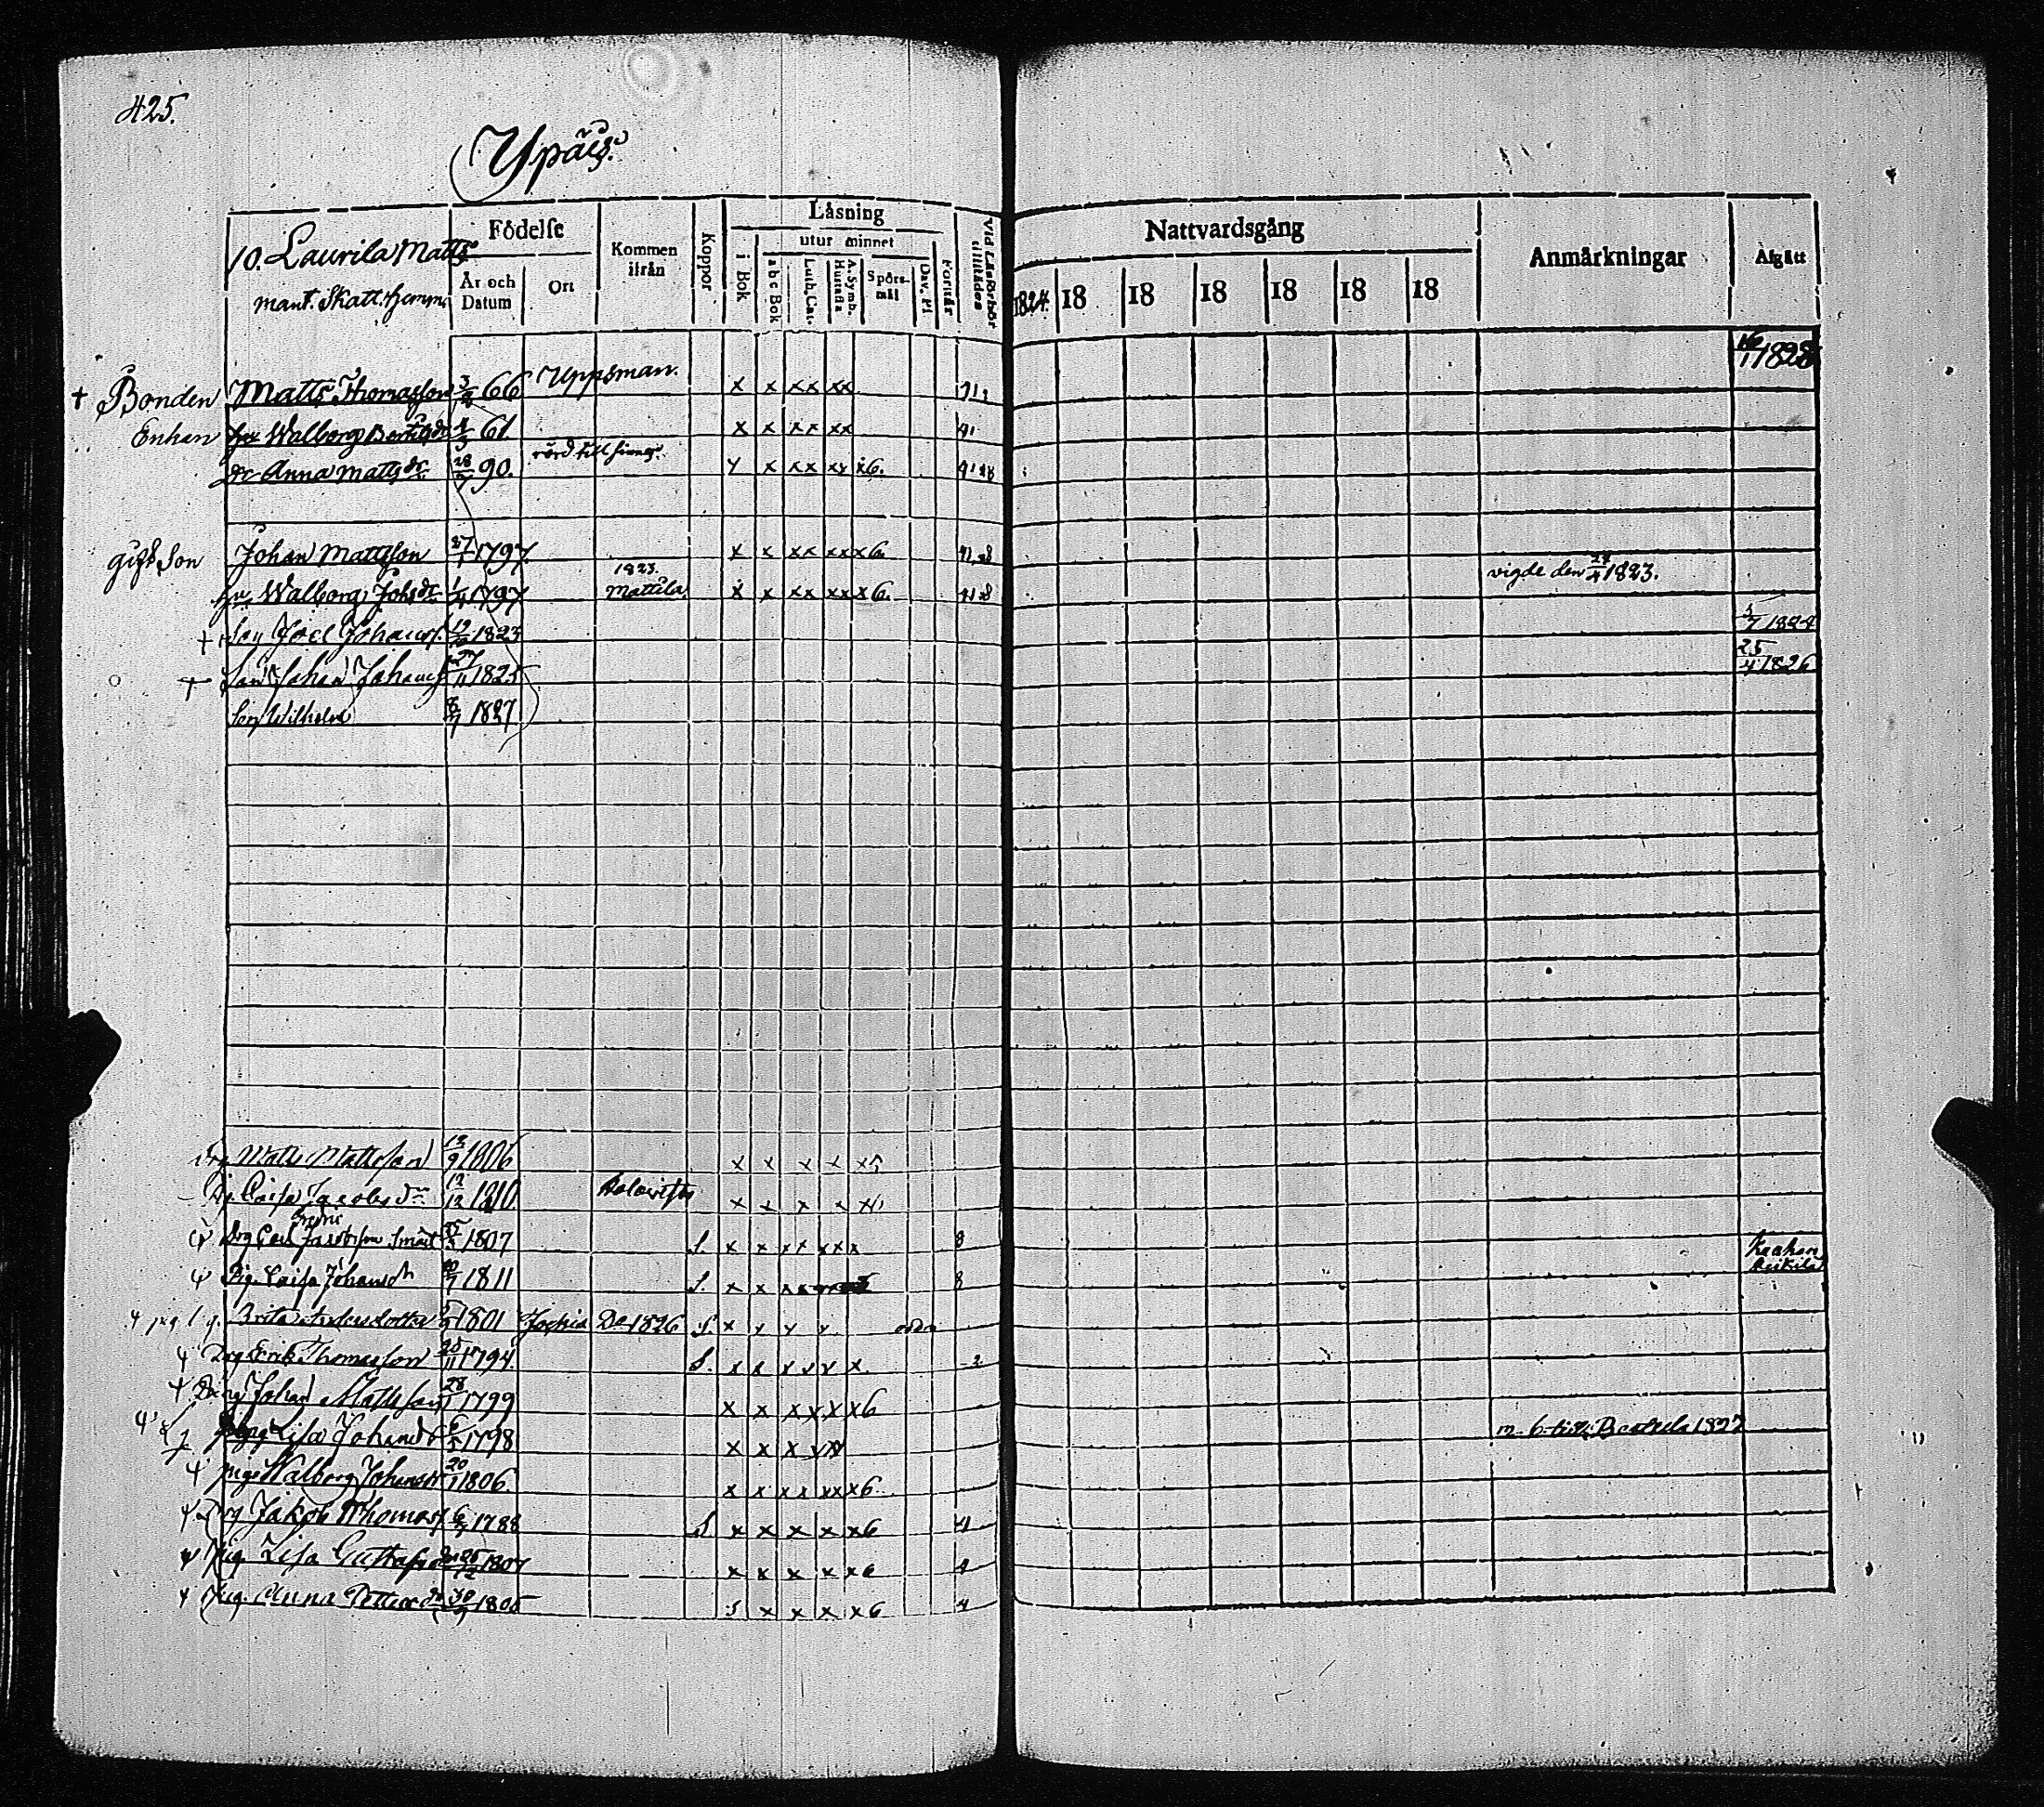 425.
Ypäis.
10. Laurila Matts
mant. Skatt. hemm.
Födelse
År och Datum
Ort
Kommen ifrån
Koppor
Läsning
i Bok
utur minnet
a b c Bok
Luth. Cat.
A. Symb. Hustafla
Spörsmål
Dav. Ps
Förstår
Vid Läsförhör tillstädes
Nattvardsgång
1824. 18 18 18 18 18 18
Anmärkningar
Afgått
† Bonden Matts Thomasson 3/2 66 Uppsman. x x xx xx 16/1 1828
Enkan hu Walborg 61. x x xx xx
dr Anna Mattsdr 28/7 90. rörd till sinnes x xx xx x6.
gift Son Johan Mattsson 27/1 1797. x x xx xx x6.
hu. Walborg Johsdr 1/4 1797 1823. Mattila x x xx xx x6. vigde den 24/4 1823.
† Son Joel Johanss. 19/ 1823 5/7 1824
† Son Johan Johanss 27/11 1825 25/4 1826
Son Wilhelm 8/7 1827
Drg Matts Mattsson 13/9 1806 x x x x x5
Pig. Caisa Jacobsdr 12/12 1810 x x x x
Drg Carl Jacobsson Smått 1807 S. x x xx xxx 8
Pig. Caisa Johansdr 1811 S. x x 8 Kaakon
pig Brita Andersdotter 1801 Jockis Do 1826 S. x x x x
Drg Erik Thomasson 25/11 1794 S. x x x x x x 2
Drg Johan Mattsson 28/1 1799 x x x x x x6
Pig Lisa Johansdr 1798 x x x x x 1827
pig. Walborg Johansdr 20/1 1806. x x xx xx x6
Drg Jakob Thomass. 1788 S x x x x x6 4
Pig. Lisa Gustafsdr 26/12 1807 x x x x x6 4
Pig. Anna Pettersdr 30/7 1805 5 x x x x6 4